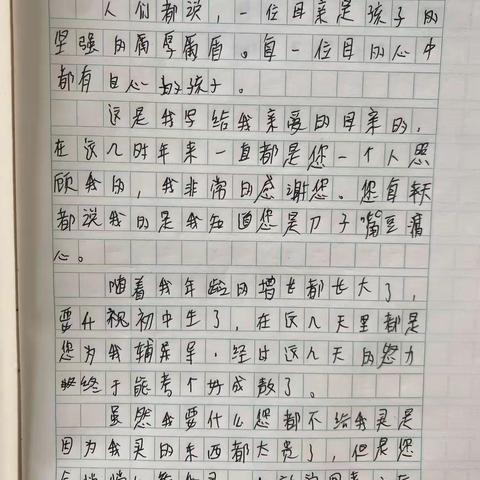 人们都说，一位母亲是孩子的
坚强的后盾。每一位母的心中
都有自心的孩子。
这是我写给我亲爱的母亲的，
在这几时年来一直都是您一个人照
顾我的，我非常的感谢您。您每天
都说我的是我知道您是刀子嘴豆腐
心。
随着我年龄的增长都长大了，
要升初中生了，在这几天里都是
您为我辅导，经过这几天的努力
终于能考个好成数了。
虽然我要什么您都不给我买是
因为我买的东西都太贵了，但是您